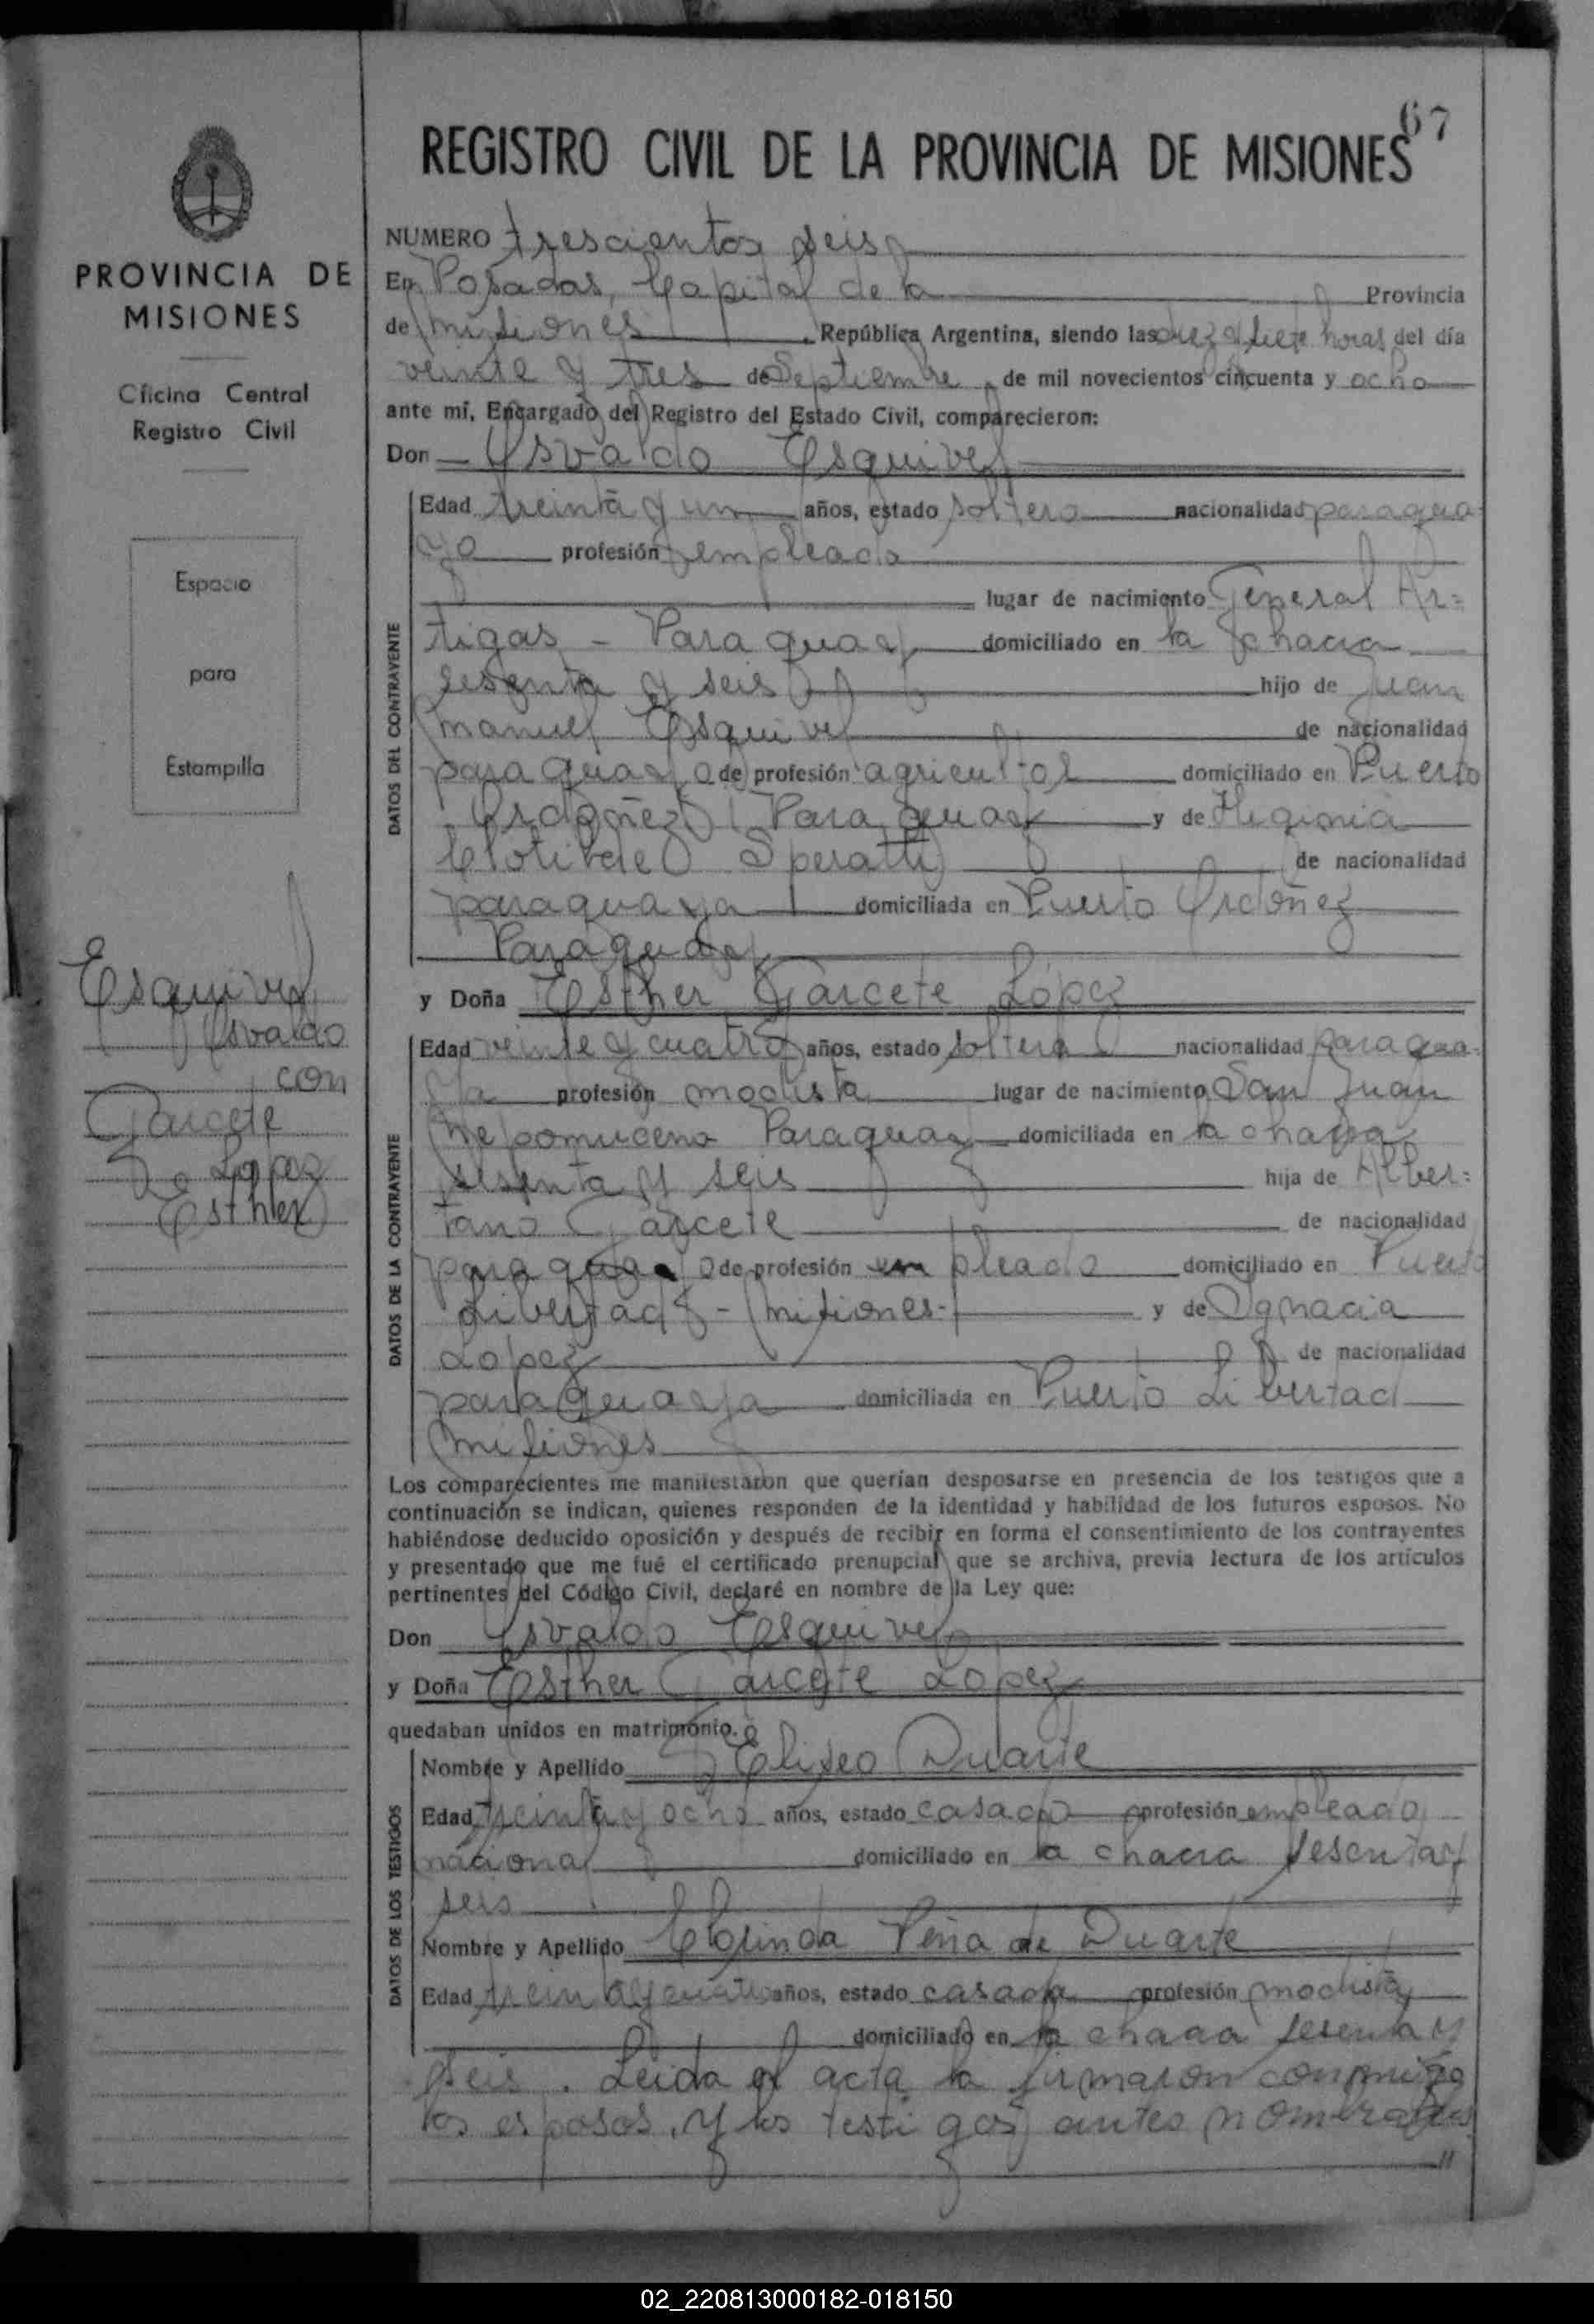 67
REGISTRO CIVIL DE LA PROVINCIA DE MISIONES
PROVINCIA DE
MISIONES
Oficina Central
Registro Civil
Espacio
para
Estampilla
Esquivel
Osvaldo
con
Garcete
Lopez
Esther
NUMERO trescientos seis
En Posadas, Capital de la Provincia
de Misiones, República Argentina, siendo las diez y siete horas del día
veinte y tres de Septiembre, de mil novecientos cincuenta y ocho
ante mí, Encargado del Registro del Estado Civil, comparecieron:
Don Osvaldo Esquivel
DATOS DEL CONTRAYENTE
Edad treinta y un años, estado soltero nacionalidad paragua-
yo profesión empleado
lugar de nacimiento General Ar=
tigas - Paraguay domiciliado en la chacra
sesenta y seis hijo de Juan
Manuel Esquivel de nacionalidad
paraguayo de profesión agricultor domiciliado en Puerto
Ordoñez Paraguay y de Higinia
Clotilde Speratti de nacionalidad
paraguaya domiciliada en Puerto Ordoñez
Paraguay
y Doña Esther Garcete López
DATOS DE LA CONTRAYENTE
Edad veinte y cuatro años, estado soltera nacionalidad paragua-
ya profesión modista lugar de nacimiento San Juan
Nepomuceno Paraguay domiciliada en la chacra
sesenta y seis hija de Alber=
tano Garcete de nacionalidad
paraguayo de profesión empleado domiciliado en Puerto
Libertad - Misiones - y de Ignacia
Lopez de nacionalidad
paraguaya domiciliada en Puerto Libertad
Misiones
Los comparecientes me manifestaron que querían desposarse en presencia de los testigos que a
continuación se indican, quienes responden de la identidad y habilidad de los futuros esposos. No
habiéndose deducido oposición y después de recibir en forma el consentimiento de los contrayentes
y presentado que me fué el certificado prenupcial que se archiva, previa lectura de los artículos
pertinentes del Código Civil, declaré en nombre de la Ley que:
Don Osvaldo Esquivel
y Doña Esther Garcete Lopez
quedaban unidos en matrimonio.
DATOS DE LOS TESTIGOS
Nombre y Apellido Eliseo Duarte
Edad treinta y ocho años, estado casado profesión empleado
nacional domiciliado en la chacra sesenta y
seis
Nombre y Apellido Clorinda Peña de Duarte
Edad treinta y cuatro años, estado casada profesión modista
domiciliado en la chacra sesenta y
seis. Leida el acta la firmaron conmigo
los esposos, y los testigos antes nombrados
02_220813000182-018150